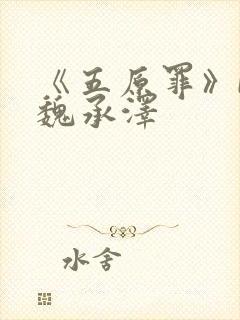 《五原罪》
魏承澤
水舍